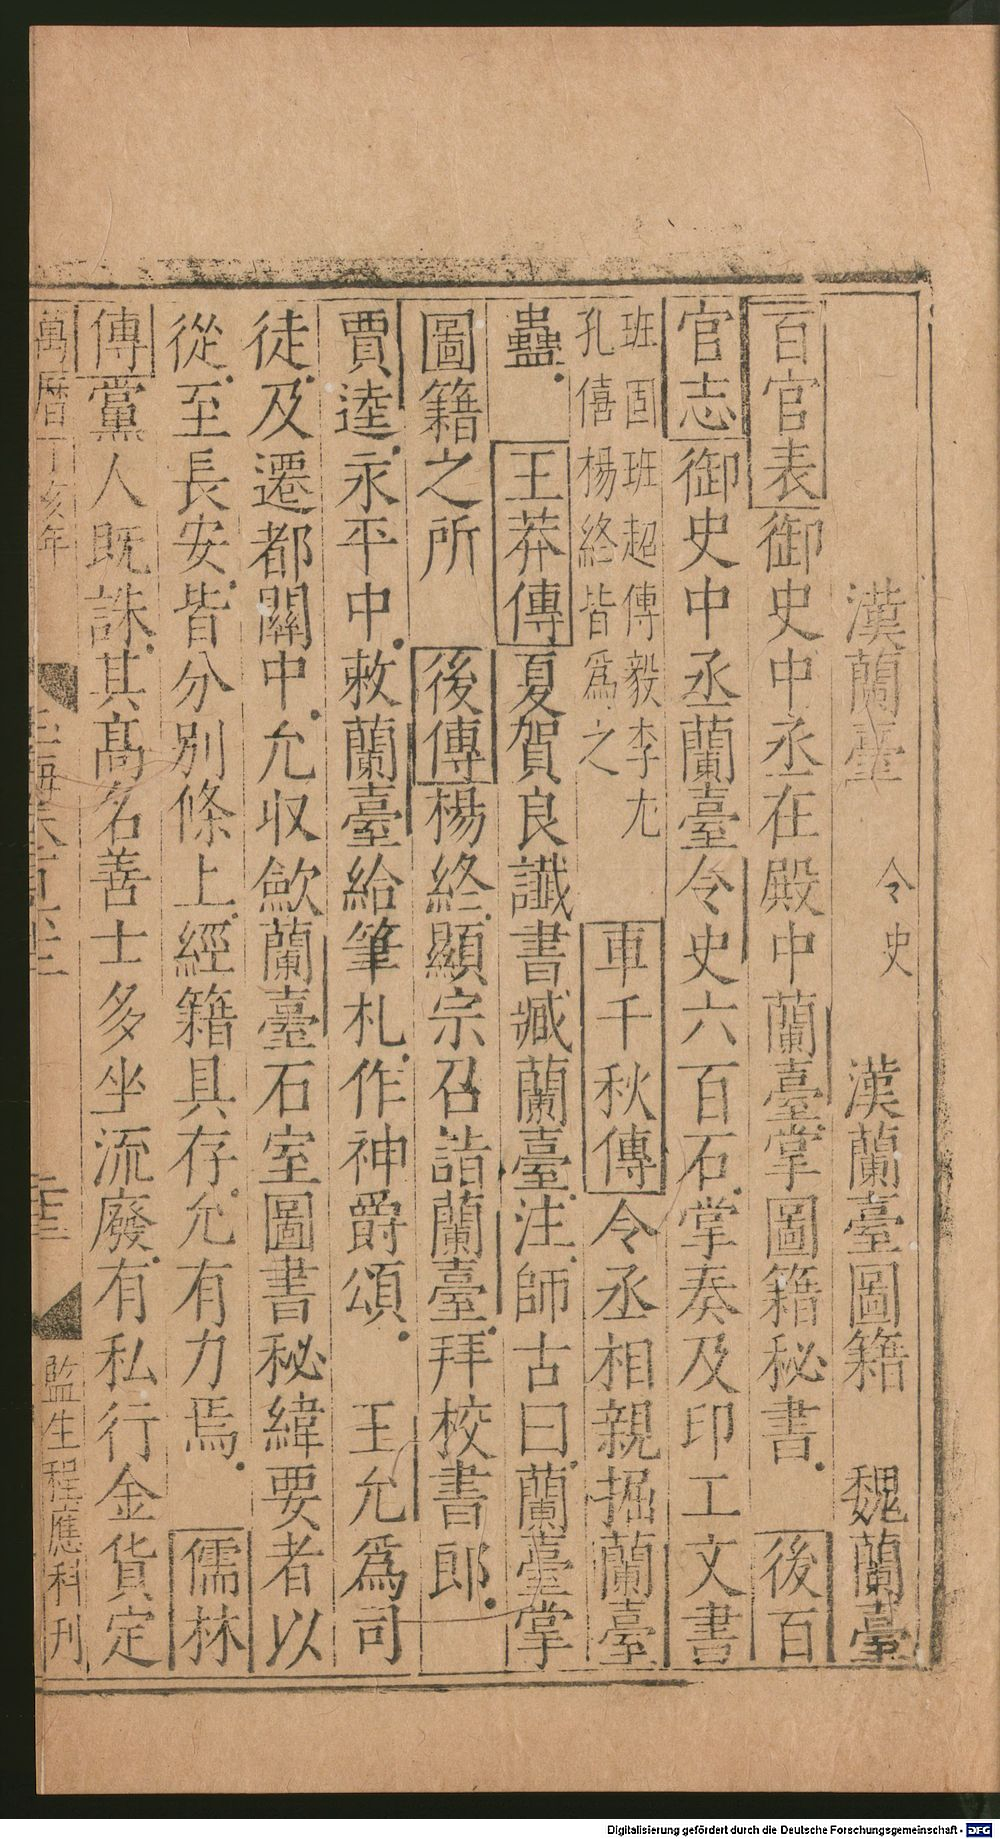 漢蘭臺 令史 漢蘭臺圖籍 魏蘭臺
百官表御史中丞在殿中蘭臺掌圖籍秘書 後百
官志御史中丞蘭臺令史六百石掌奏及印工文書
班固班超傅毅李尤
孔僖楊終皆爲之
車千秋傳令丞相親掘蘭臺
蠱 王莽傳夏賀良讖書臧蘭臺注師古曰蘭臺掌
圖籍之所 後傳楊終顯宗召詣蘭臺拜校書郎
賈逵永平中敕蘭臺給筆札作神爵頌 王允爲司
徒及遷都關中允收斂蘭臺石室圖書秘緯要者以
從至長安皆分別條上經籍具存允有力焉 儒林
傳黨人既誅其高名善士多坐流廢有私行金貨定
萬曆丁亥年
監生程應科刊
Digitalisierung gefördert durch die Deutsche Forschungsgemeinschaft - DFG